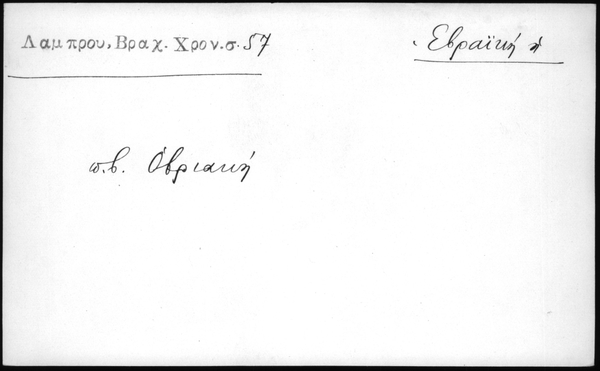 Λαμπρου, Βραχ. Χρον. σ. 57
Ἑβραϊκή ἡ
π.β. Ὀβριακή